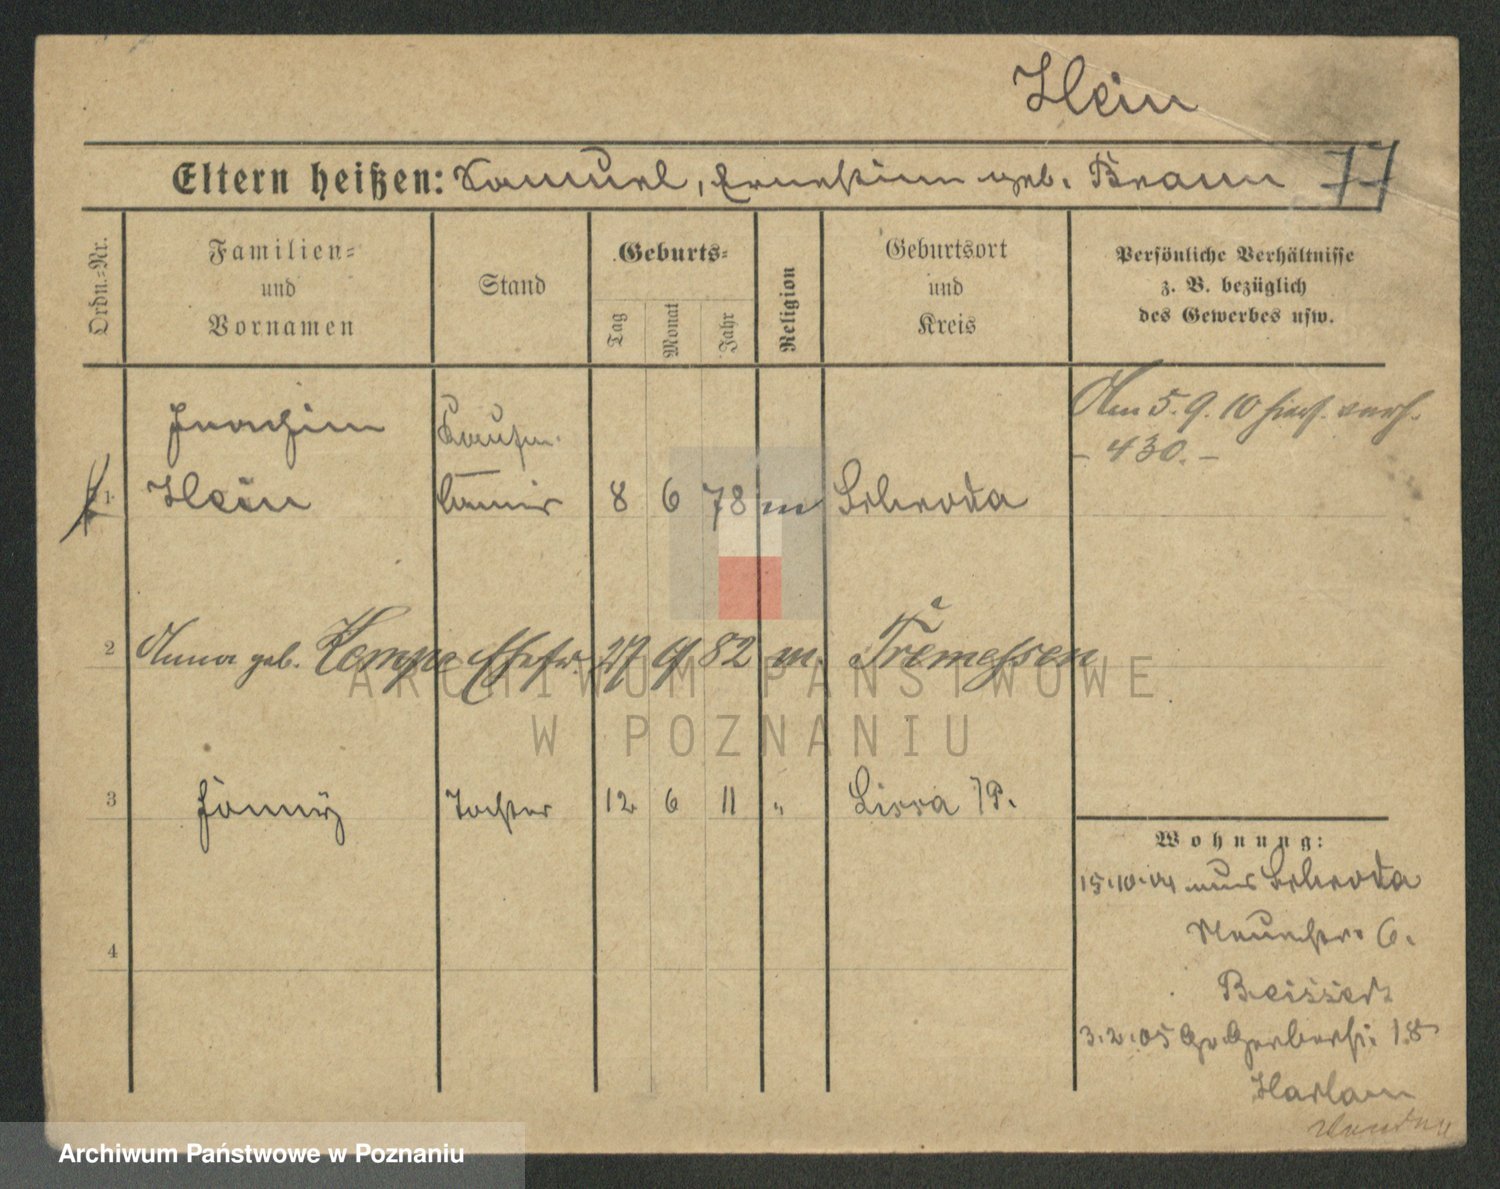 Hein
Eltern heißen: Samuel, Ernestine geb. Braun 77
Ordn.-Nr.
Familien-
und
Vornamen
Stand
Geburts-
Tag
Monat
Jahr
Religion
Geburtsort
und
Kreis
Persönliche Verhältnisse
z. B. bezüglich
des Gewerbes usw.
Joachim Kaufm. Am 5.9.10 hier verh.
- 430. -
1 Hein 8 6 78 m Schroda
2 Anna geb. Kempe Ehefr. 27 9 82 m. Tremessen
3 Fanny Tochter 12 6 11 " Lissa /P.
Wohnung:
15.10.04 aus Schroda
4
Neuestr. 6.
Beissert
3.2.05 Gr. Gerberstr. 18
Harlam
Wenden
ARCHIWUM PAŃSTWOWE
W POZNANIU
Archiwum Państwowe w Poznaniu